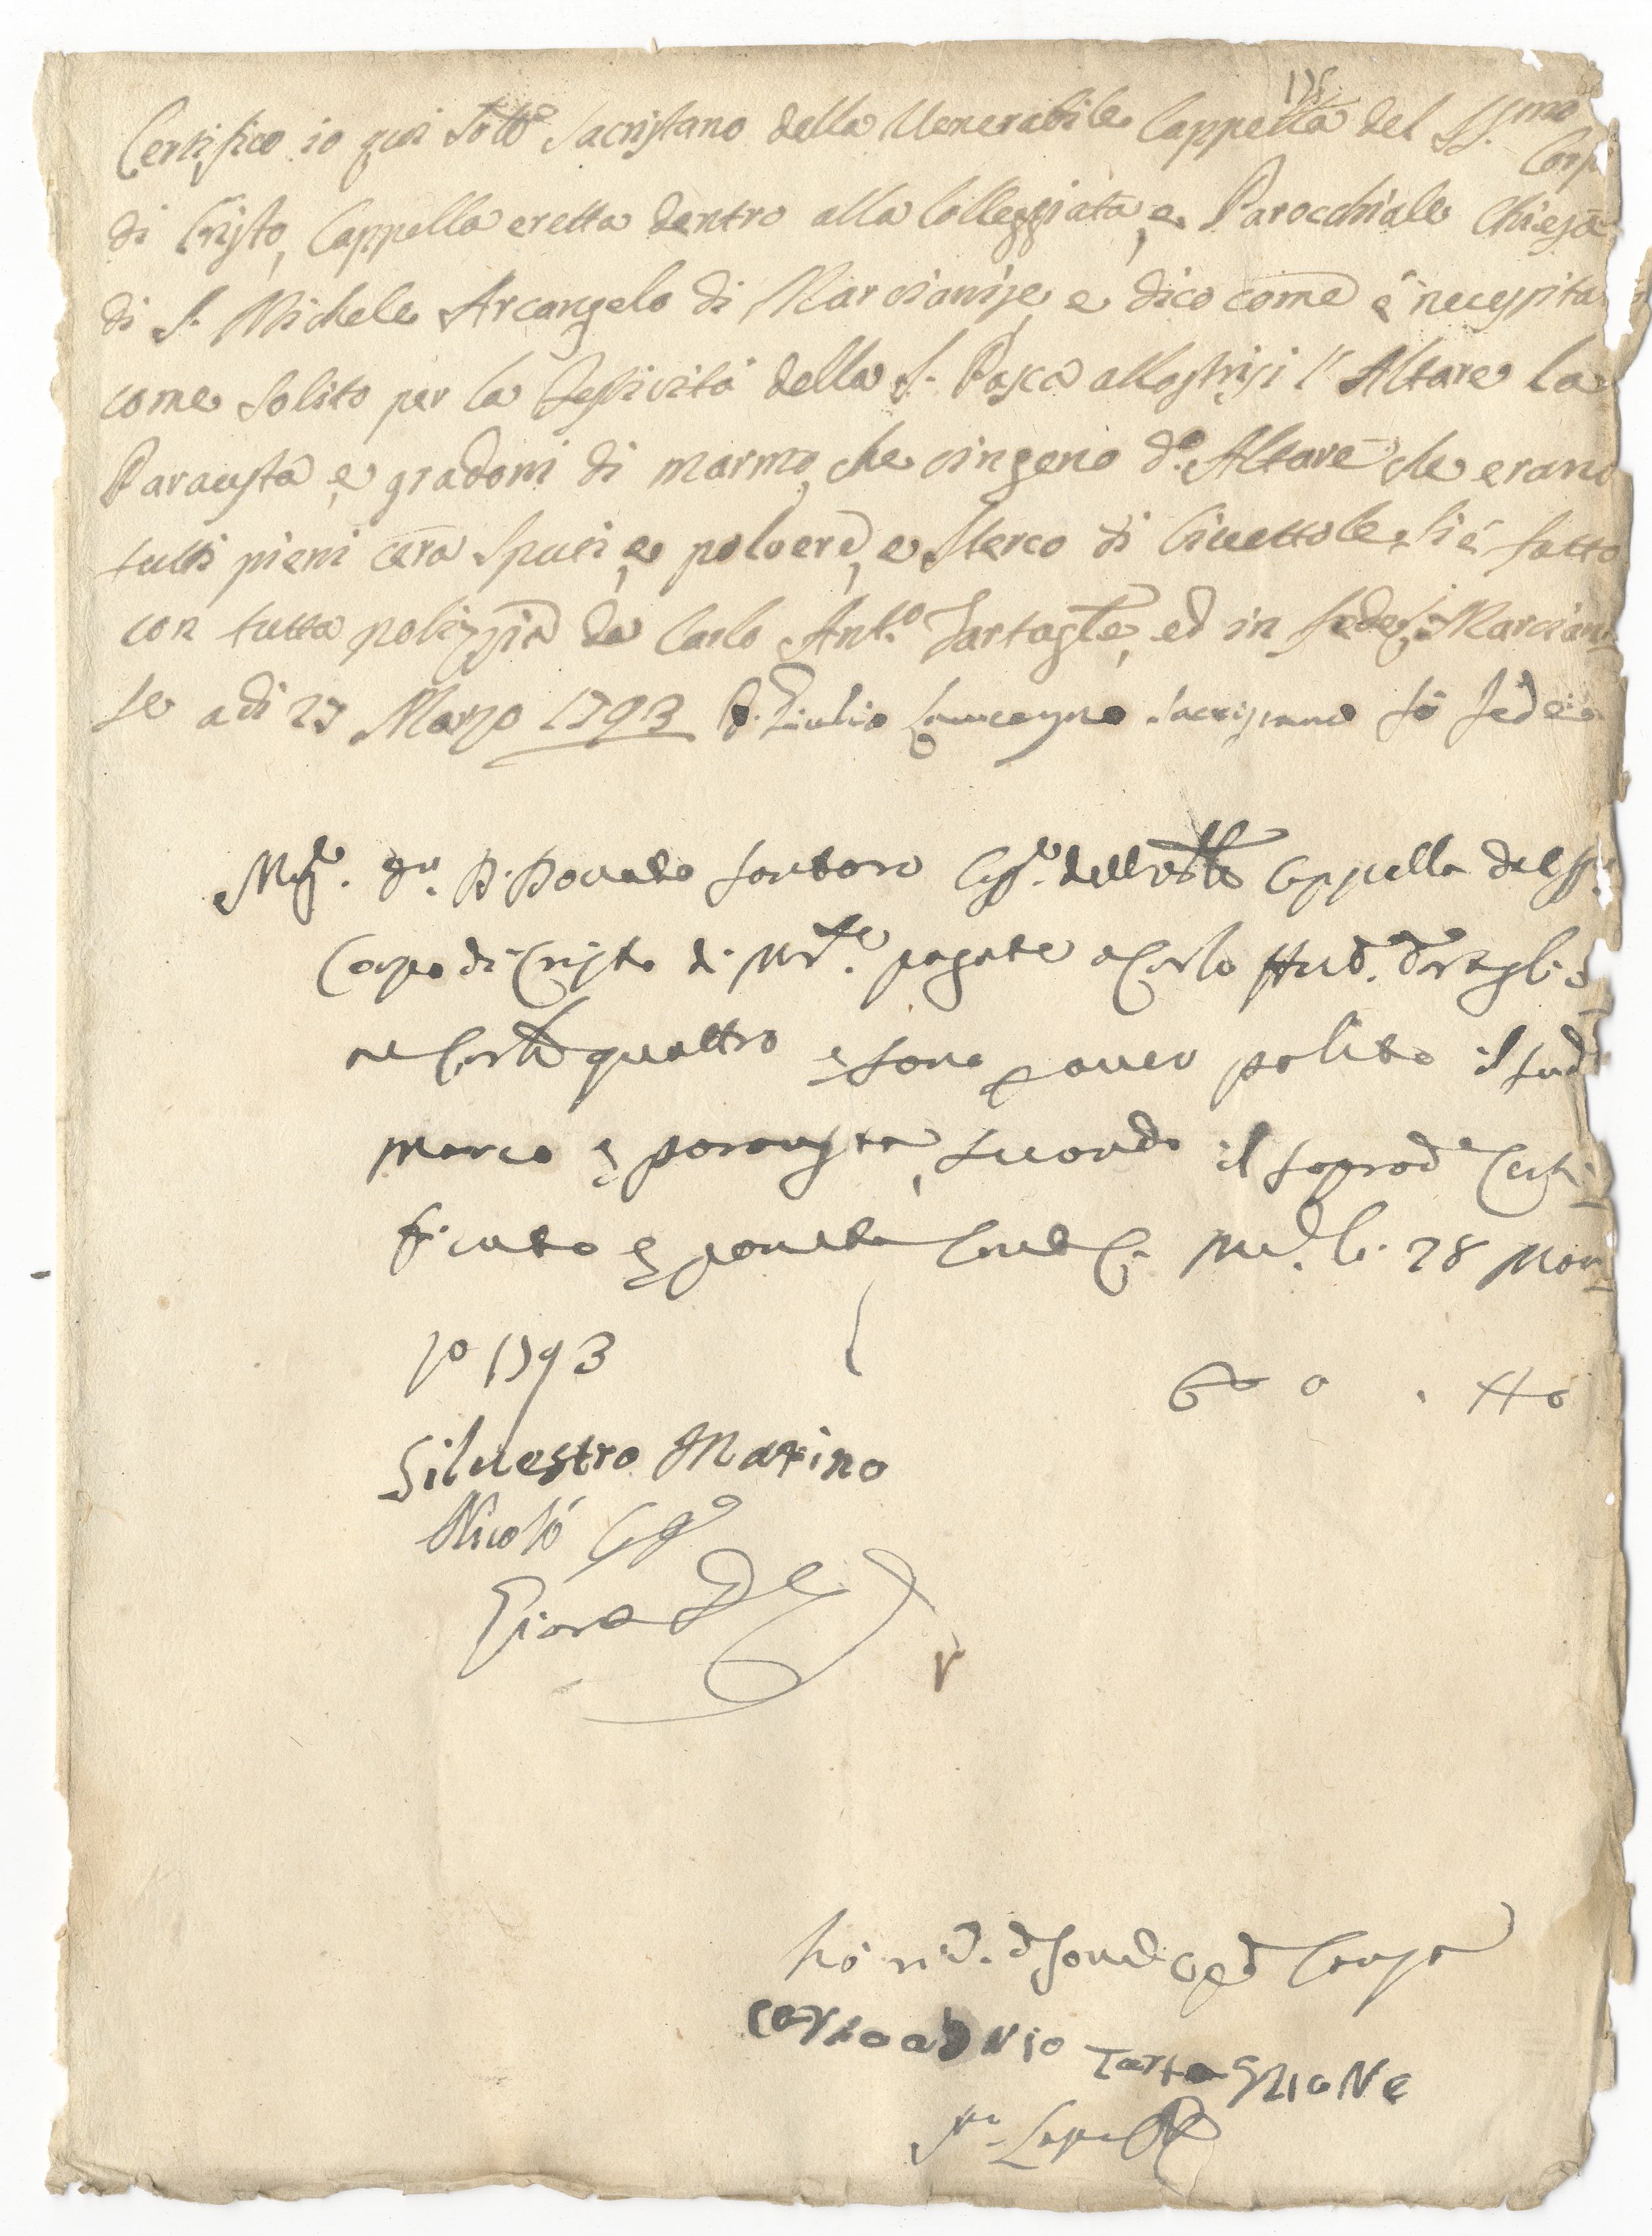 175
Certifico io qui Sottō Sacristano della Venerabile Cappella del SS.mo Corpo
di Cristo, Cappella eretta dentro alla Colleggiata, e Parocchiale Chiesa
di S. Michele Arcangelo di Marcianise, e dico come è necessita
come solito per la Festività della S. Pasca allostrisi l'Altare la
Parausta e gradoni di marmo, che cingeno d.o Altare che erano
tutti pieni cera Sputi, e polvere, e Sterco di Civettole, si è fatto
con tutta polizzia da Carlo Ant.o Tartagle, ed in fede Marciani
se a di 27 Marzo 1793 D. Giulio Sacristano fò fede
Mag.co Sr. D. Donato Santoro Cass.re della Cappella del SS.
Corpo di Cristo di Mar.se pagate a Carlo Ant.o Tartaglio
ne Carlini quattro e sono p aver polito il sud
Marmo e parausta, secondo il soprad.o Certi
ficato e ponete Mar. li 28 Mar
zo 1793
Silvestro Marino
Nicolò
0 . 40
hò ric. d
carlo antonio TartaGLioNe